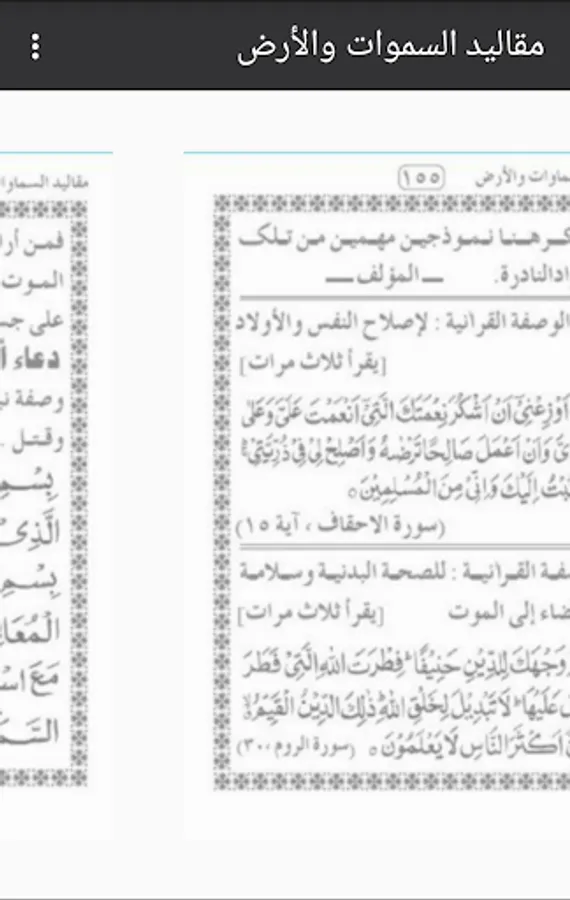 مقاليد السموات والأرض
ماوات والأرض
١٥٥
كر هنا نموذجين مهمين من تلك
ادالنادرة. ـ المؤلف ـ
الوصفة القرآنية : لإصلاح النفس والأولاد
[يقرأ ثلاث مرات]
اَوْزِعْنِىٓ اَنْ اَشْكُرَ نِعْمَتَكَ الَّتِىٓ اَنْعَمْتَ عَلَىَّ وَعَلٰى
ىَّ وَاَنْ اَعْمَلَ صَالِحًا تَرْضٰىهُ وَاَصْلِحْ لِى فِى ذُرِّيَّتِىْ
تُبْتُ اِلَيْكَ وَاِنِّىْ مِنَ الْمُسْلِمِيْنَ
(سورة الاحقاف ، آية ١٥)
صفة القرآنية : للصحة البدنية وسلامة
ضاء إلى الموت [يقرأ ثلاث مرات]
وَجْهَكَ لِلدِّيْنِ حَنِيْفًا فِطْرَتَ اللهِ الَّتِىْ فَطَرَ
عَلَيْهَا لَا تَبْدِيْلَ لِخَلْقِ اللهِ ذٰلِكَ الدِّيْنُ الْقَيِّمُ
اَكْثَرَ النَّاسِ لَا يَعْلَمُوْنَ (سورة الروم ،٣٠)
مقاليد السماوا
فمن أرا
الموت
على جس
دعاء أ
وصفة نب
وقتل .
بِسْمِ
الَّذِى
بِسْمِ
الْمُعَا
مَعَ اسْ
السَّمَ